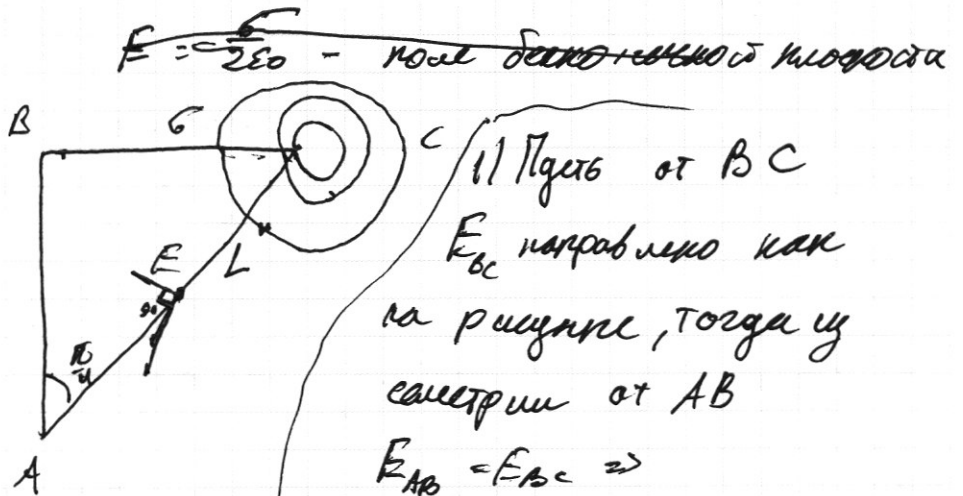 E = σ/2ε₀ - поле бесконечной плоскости
B
σ
C
1) Пусть от BC
E_BC направлено как
на рисунке, тогда из
симетрии от AB
E_AB = E_BC =>
E
L
90
π/4
A